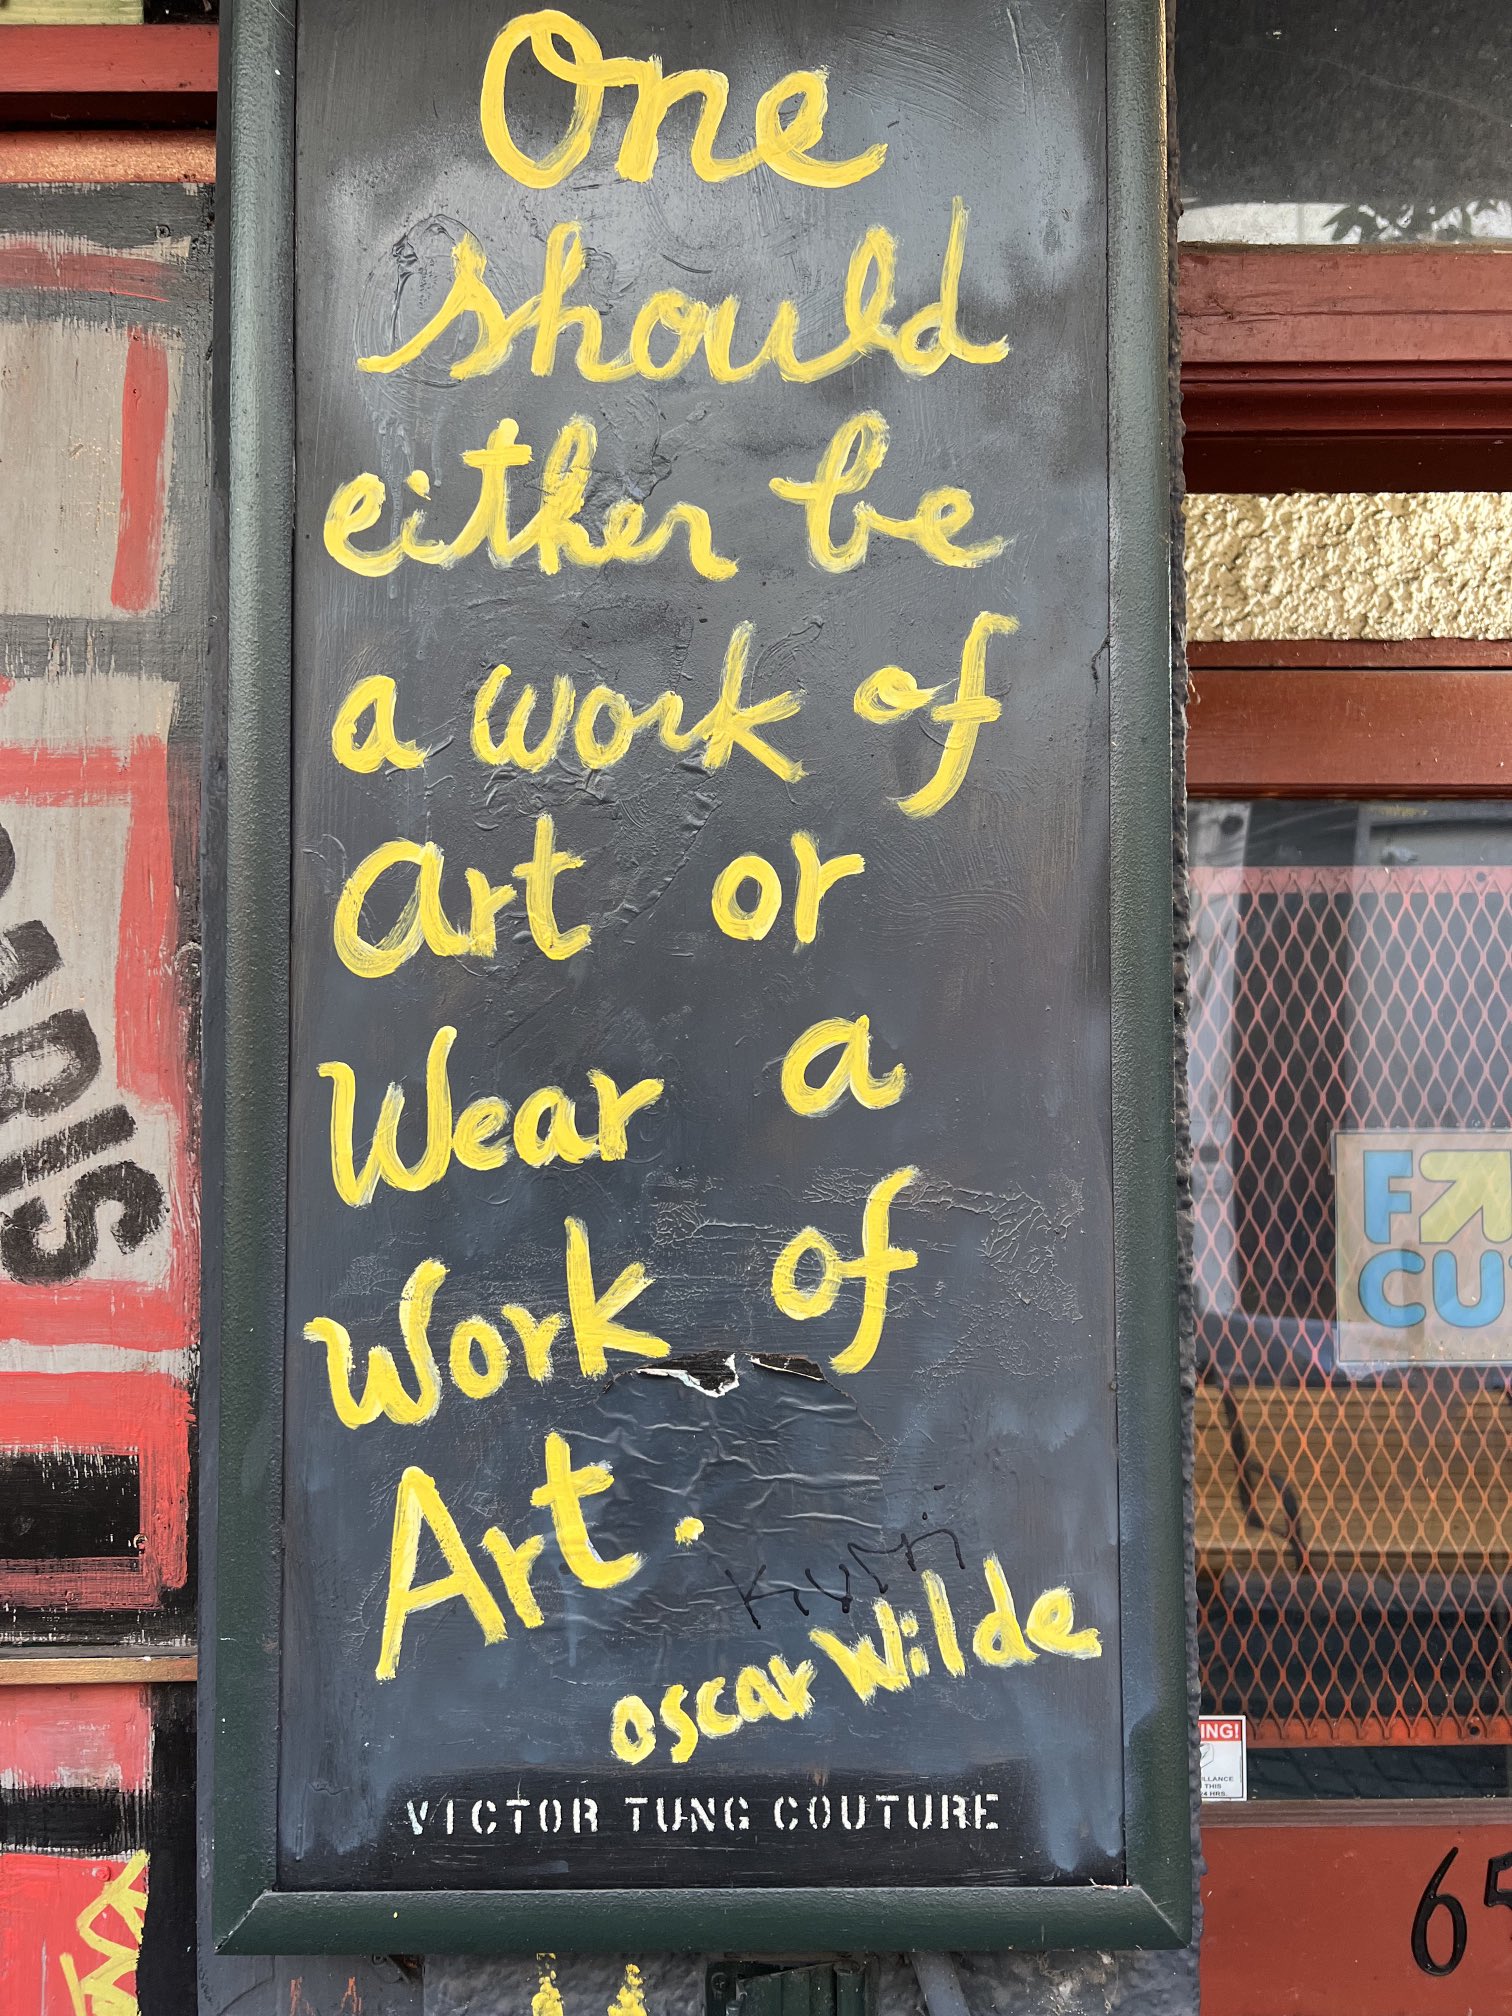 One
should
either be
a work of
Art or
Wear a
Work of
Art.
oscar Wilde
VICTOR TUNG COUTURE
SIS
CU
ING!
LLANCE
THIS
4 HRS.
65